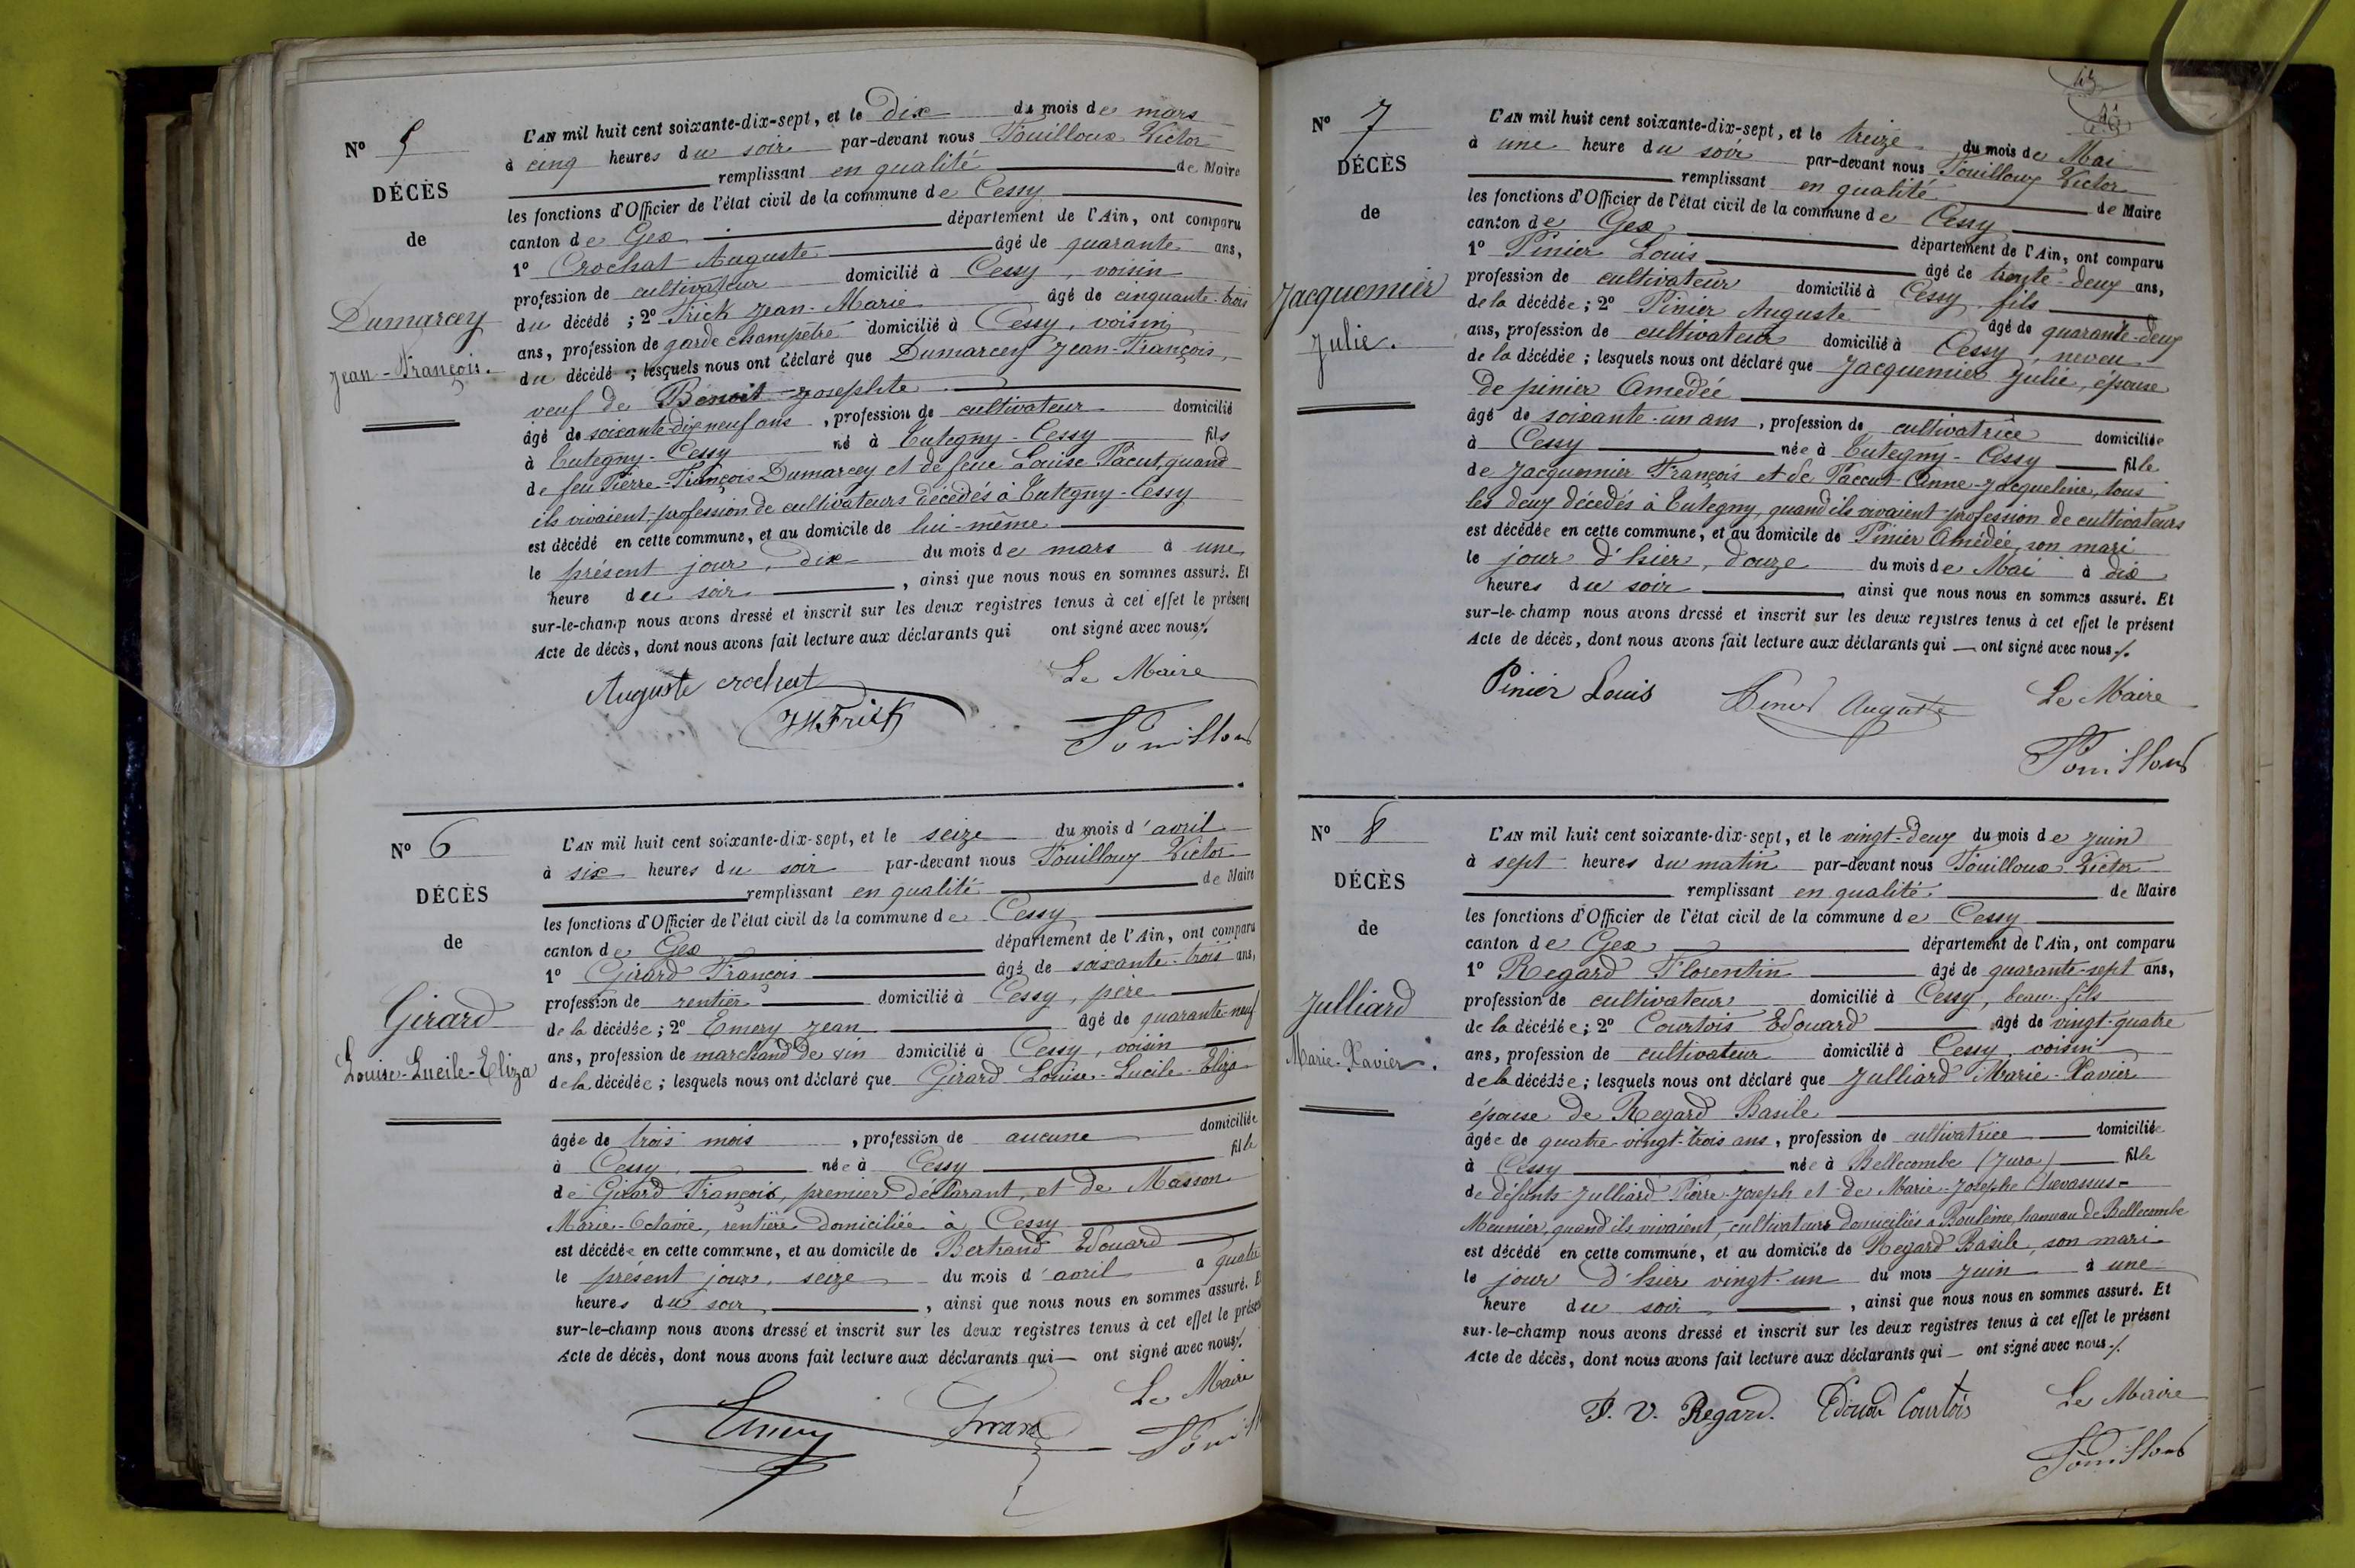 N° 5
DÉCÈS
de
Dumarcey
Jean-François.
L'AN mil huit cent soixante-dix-sept, et le dix du mois de mars
à cinq heures du soir par-devant nous Fouilloux Victor
remplissant en qualité de Maire
les fonctions d'Officier de l'état civil de la commune de Cessy
canton de Gex département de l'Ain, ont comparu
1° Crochat Auguste âgé de quarante ans,
profession de cultivateur domicilié à Cessy, voisin
du décédé ; 2° Frick Jean-Marie âgé de cinquante-trois
ans, profession de garde champêtre domicilié à Cessy, voisin
du décédé ; lesquels nous ont déclaré que Dumarcey Jean-François,
veuf de Benoit Josephte
âgé de soixante-dix neuf ans, profession de cultivateur domicilié
à Tutegny-Cessy né à Tutegny-Cessy fils
de feu Pierre-François Dumarcey et de feue Louise Pacut, quand
ils vivaient, profession de cultivateurs décédés à Tutegny-Cessy
est décédé en cette commune, et au domicile de lui-même
le présent jour, dix du mois de mars à une
heure du soir, ainsi que nous nous en sommes assuré. Et
sur-le-champ nous avons dressé et inscrit sur les deux registres tenus à cet effet le présent
Acte de décès, dont nous avons fait lecture aux déclarants qui ont signé avec nous./.
Auguste Crochat
JM Frick
Le Maire
Fouilloux
N° 6
DÉCÈS
de
Girard
Louise-Lucile-Eliza
L'AN mil huit cent soixante-dix-sept, et le seize du mois d'avril
à six heures du soir par-devant nous Fouilloux Victor
remplissant en qualité de Maire
les fonctions d'Officier de l'état civil de la commune de Cessy
canton de Gex département de l'Ain, ont comparu
1° Girard François âgé de soixante-trois ans,
profession de rentier domicilié à Cessy, père
de la décédée ; 2° Emery Jean âgé de quarante-neuf
ans, profession de marchand de vin domicilié à Cessy, voisin
de la décédée ; lesquels nous ont déclaré que Girard Louise-Lucile-Eliza
âgée de trois mois, profession de aucune domiciliée
à Cessy née à Cessy fille
de Girard François, premier déclarant, et de Masson
Marie-Octavie, rentière domiciliée à Cessy
est décédée en cette commune, et au domicile de Bertrand Edouard
le présent jour, seize du mois d'avril à quatre
heures du soir, ainsi que nous nous en sommes assuré. Et
sur-le-champ nous avons dressé et inscrit sur les deux registres tenus à cet effet le présent
Acte de décès, dont nous avons fait lecture aux déclarants qui — ont signé avec nous./.
Emery
Le Maire
N° 7
DÉCÈS
de
Jacquemier
Julie.
L'AN mil huit cent soixante-dix-sept, et le treize du mois de Mai
à une heure du soir par-devant nous Fouilloux Victor
remplissant en qualité de Maire
les fonctions d'Officier de l'état civil de la commune de Cessy
canton de Gex département de l'Ain, ont comparu
1° Pinier Louis âgé de trente-deux ans,
profession de cultivateur domicilié à Cessy, fils
de la décédée ; 2° Pinier Auguste âgé de quarante-deux
ans, profession de cultivateur domicilié à Cessy, neveu
de la décédée ; lesquels nous ont déclaré que Jacquemier Julie, épouse
de pinier Amédée
âgé de soixante-un ans, profession de cultivatrice domiciliée
à Cessy née à Tutegny-Cessy fille
de Jacquemier François et de Paccut Anne-Jacqueline, tous
les deux décédés à Tutegny, quand ils vivaient profession de cultivateurs
est décédée en cette commune, et au domicile de Pinier Amédée, son mari
le jour d'hier, douze du mois de Mai à dix
heures du soir, ainsi que nous nous en sommes assuré. Et
sur-le-champ nous avons dressé et inscrit sur les deux registres tenus à cet effet le présent
Acte de décès, dont nous avons fait lecture aux déclarants qui — ont signé avec nous./.
Pinier Louis
Pinier Auguste
Le Maire
Fouilloux
N° 8
DÉCÈS
de
Julliard
Marie-Xavier.
L'AN mil huit cent soixante-dix-sept, et le vingt-deux du mois de juin
à sept heures du matin par-devant nous Fouilloux Victor
remplissant en qualité de Maire
les fonctions d'Officier de l'état civil de la commune de Cessy
canton de Gex département de l'Ain, ont comparu
1° Regard Florentin âgé de quarante-sept ans,
profession de cultivateur domicilié à Cessy, beau-fils
de la décédée ; 2° Courtois Edouard âgé de vingt-quatre
ans, profession de cultivateur domicilié à Cessy, voisin
de la décédée ; lesquels nous ont déclaré que Julliard Marie-Xavier
épouse de Regard Basile
âgée de quatre-vingt-trois ans, profession de cultivatrice domiciliée
à Cessy née à Bellecombe (Jura) fille
de défunts Julliard Pierre-Joseph et de Marie-Josephe Chevassus-
Meunier, quand ils vivaient, cultivateurs domiciliés à Boulème, hameau de Bellecombe
est décédé en cette commune, et au domicile de Regard Basile, son mari
le jour d'hier vingt-un du mois juin à une
heure du soir, ainsi que nous nous en sommes assuré. Et
sur-le-champ nous avons dressé et inscrit sur les deux registres tenus à cet effet le présent
Acte de décès, dont nous avons fait lecture aux déclarants qui — ont signé avec nous./.
F. V. Regard.
Edouard Courtois
Le Maire
Fouilloux